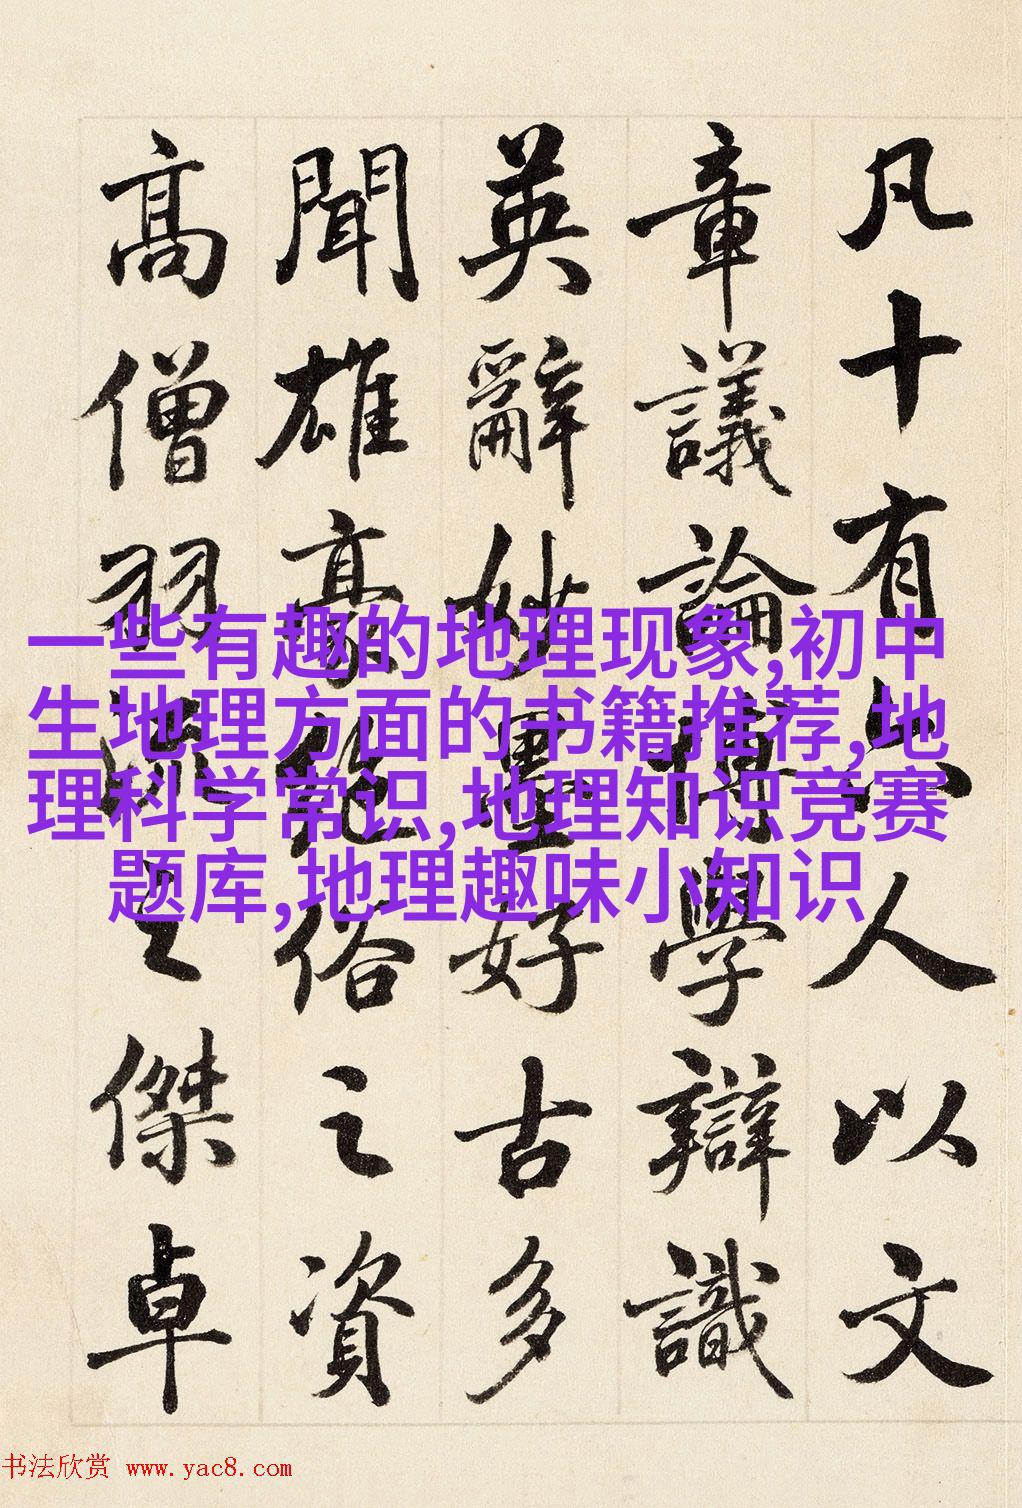 凡十有六人以文
章議論博學辯識
英辭妙墨好古多
聞雄豪絕俗之資
高僧羽流之傑卓
一些有趣的地理现象,初中
生地理方面的书籍推荐,地
理科学常识,地理知识竞赛
题库,地理趣味小知识
书法欣赏 www.yac8.com